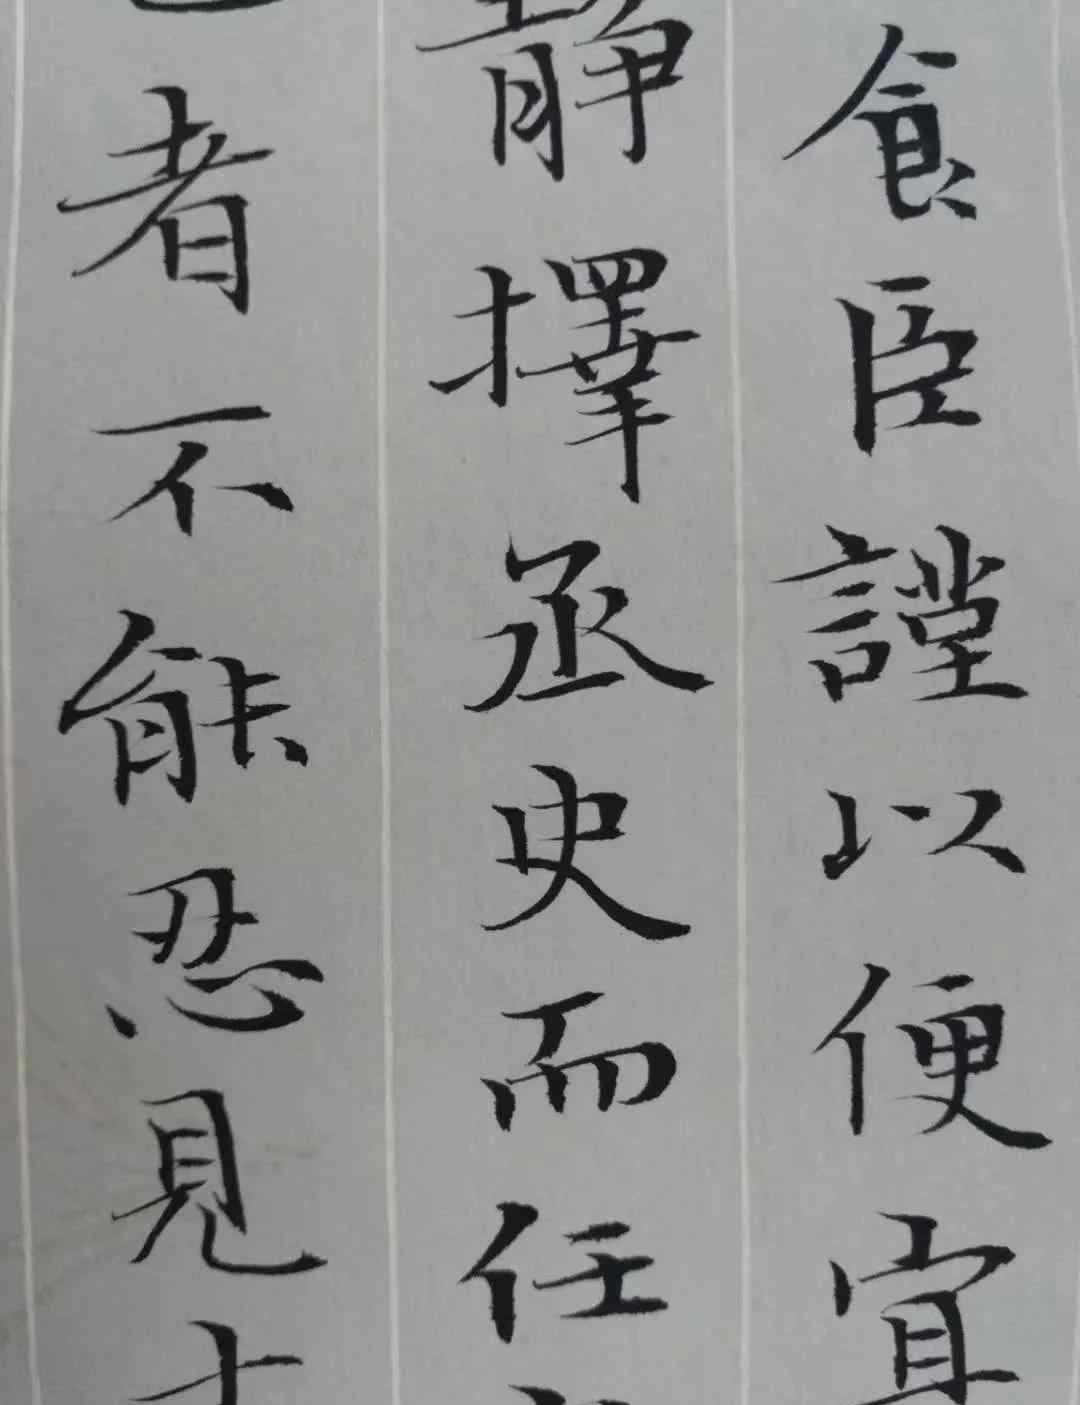 食臣謹以便宜
靜擇丞史而任
者不能忍見